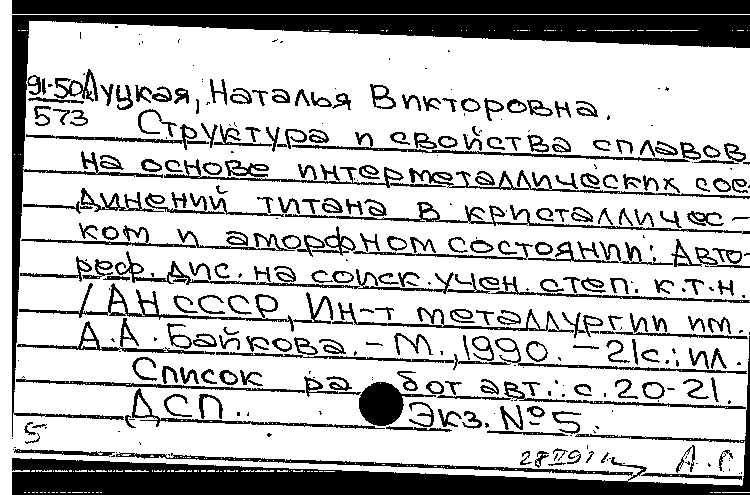 91-50
573
Луцкая, Наталья Викторовна.
Структура и свойства сплавов
на основе интерметаллических сое
динений титана в кристалличес-
ком и аморфном состоянии: Авто-
реф. дис. на соиск. учен. степ. к.т.н.
/АН СССР, Ин-т металлургии им.
А.А. Байкова. – М., 1990. – 21с.: ил.
Список работ авт.: с. 20-21.
ДСП. Экз. №5.
5
А.С